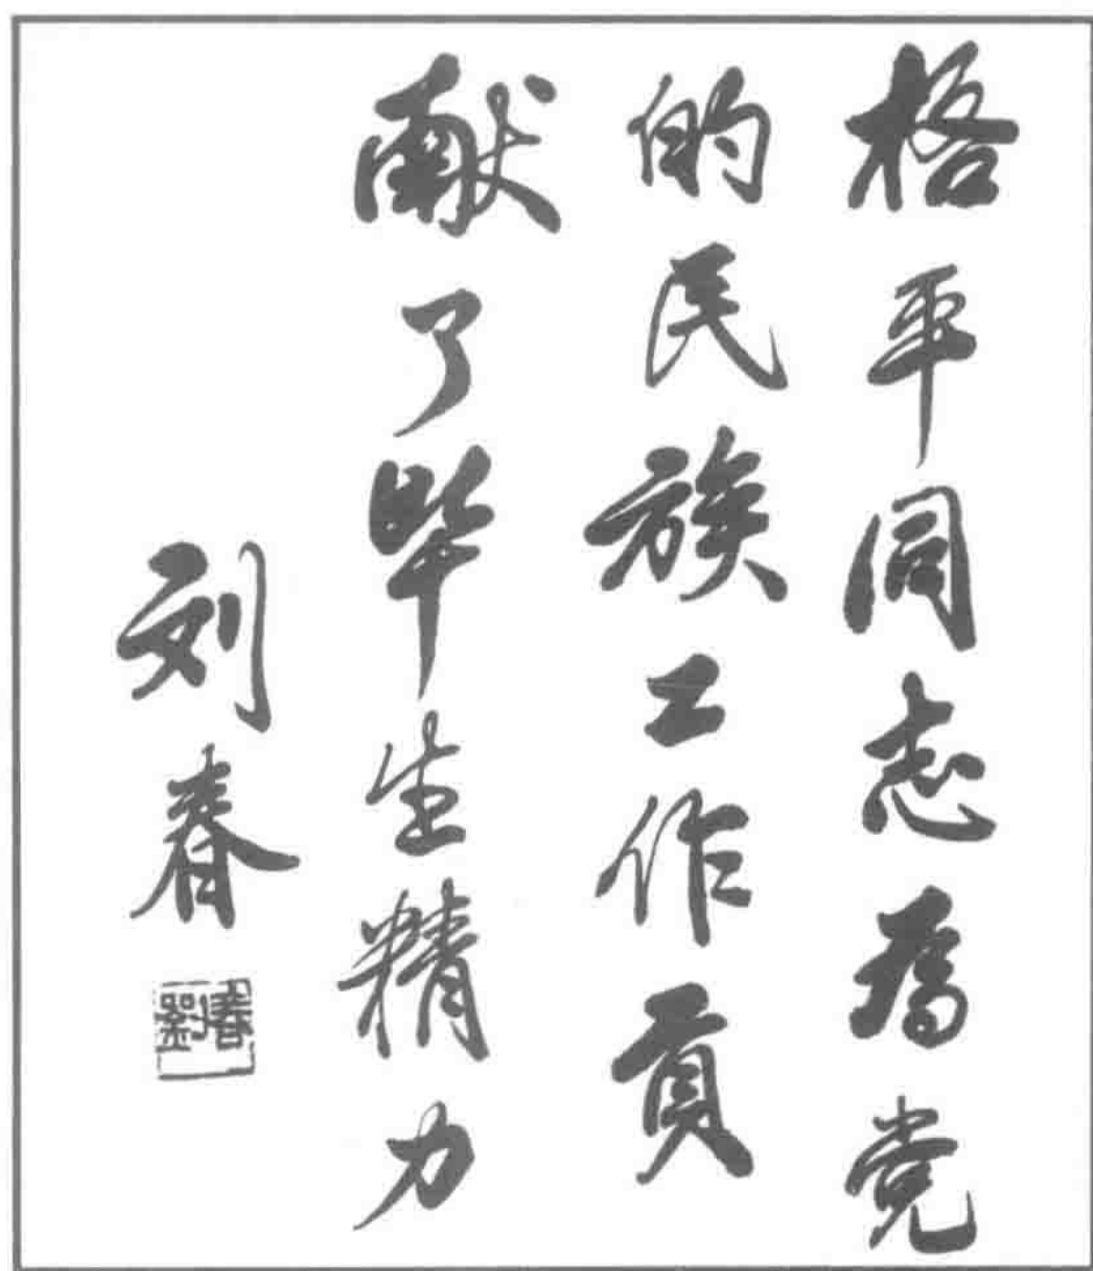 格平同志為党
的民族工作貢
献了毕生精力
刘春
劉春